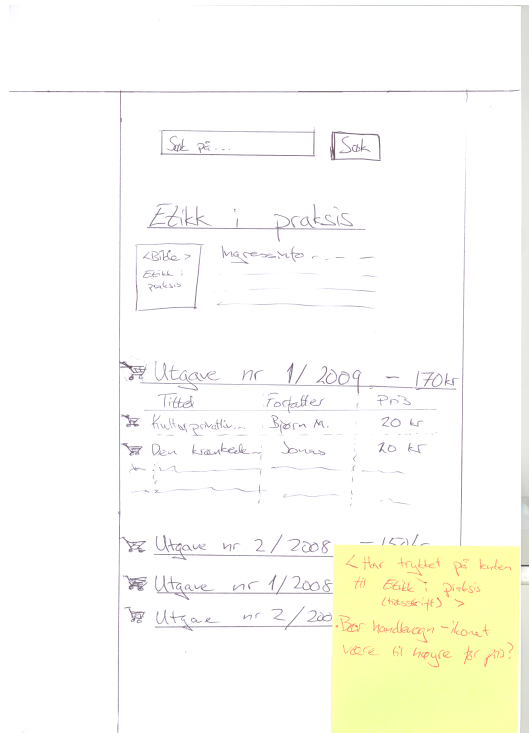 Søk på...
Søk
Etikk i praksis
<Bilde>
Etikk i
praksis
Ingressinfo...
Utgave nr 1/2009 - 170kr
Tittel Forfatter Pris
Kultur, privatliv... Bjørn M. 20 kr
Den krenkede... Jonas 20 kr
Utgave nr 2/2008 - 150kr
Utgave nr 1/2008
Utgave nr 2/200
<Har trykket på
til Etikk i praksis
(tidsskrift) >
·Bør handlevogn-ikonet
være til høyre for pris?